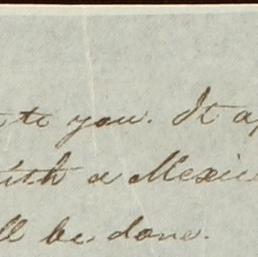 to you. It
with a Mexic
ll be done.